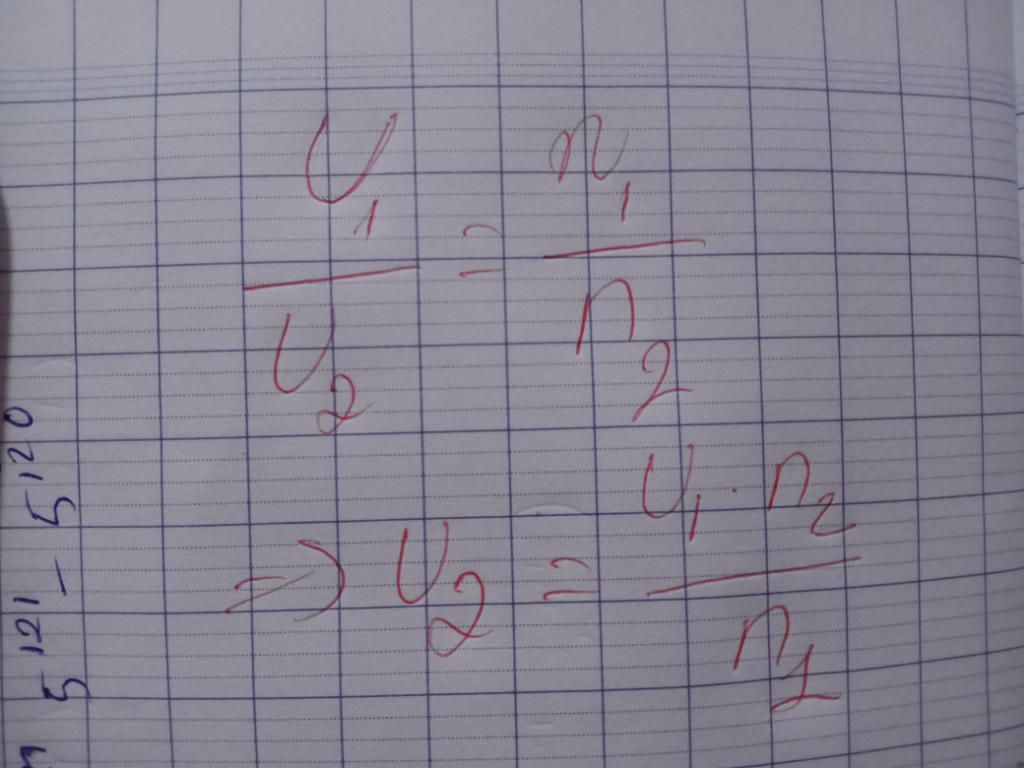 U₁/U₂ = n₁/n₂
⇒ U₂ = U₁ · n₂ / n₁
5¹²¹ – 5¹²⁰